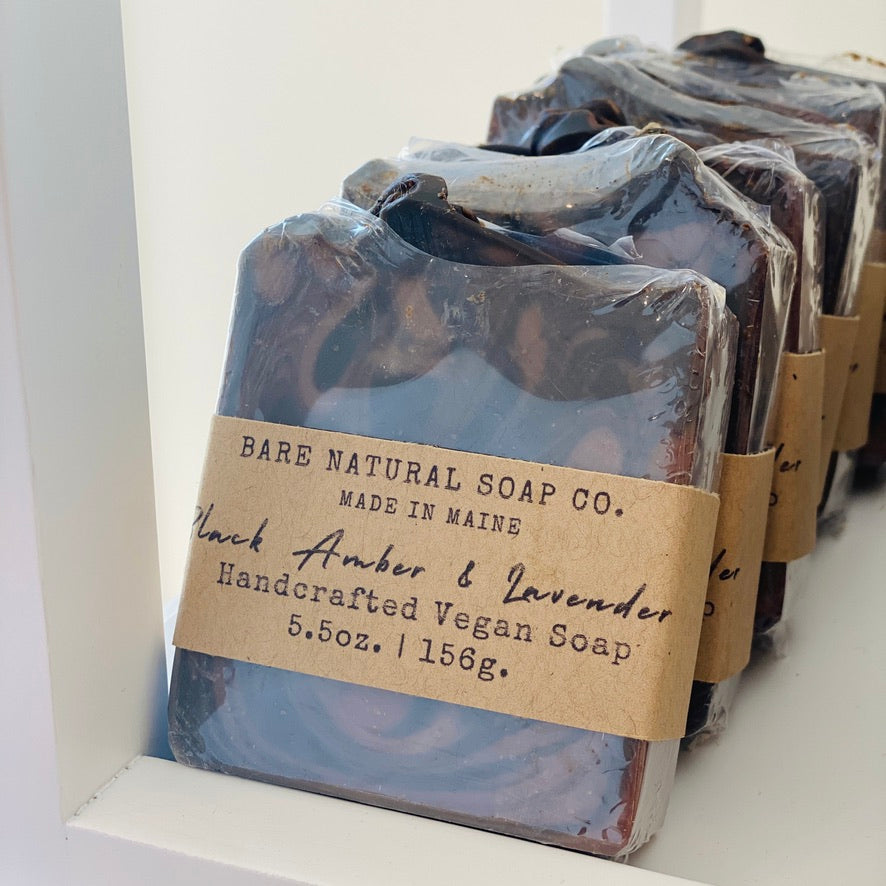 BARE NATURAL SOAP CO.
MADE IN MAINE
Black Amber & Lavender
Handcrafted Vegan Soap
5.5oz. | 156g.